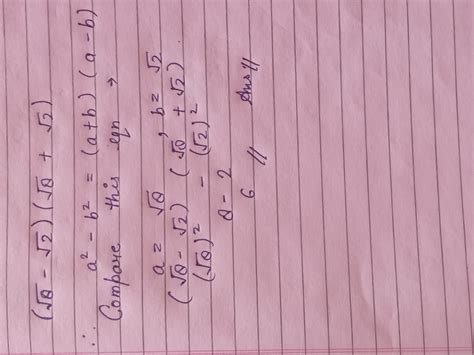 (√8 - √2)(√8 + √2)
∴ a² - b² = (a+b) (a-b)
Compare this eqn →
a = √8 , b = √2
(√8 - √2) (√8 + √2).
(√8)² - (√2)²
8 - 2
6 // Ans //